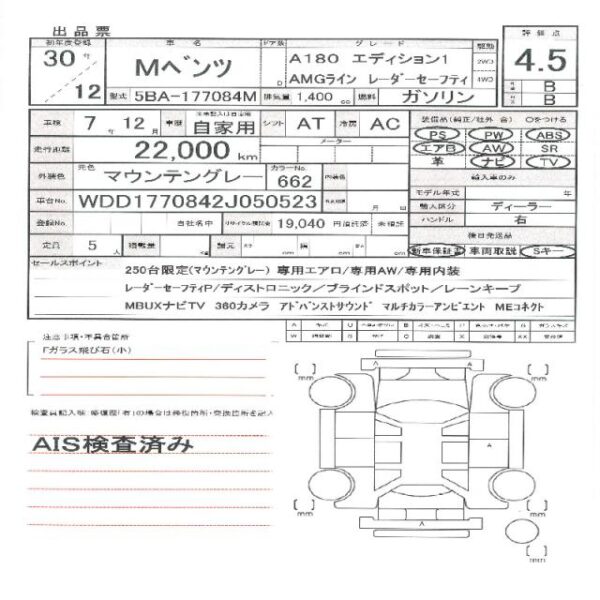 出品票
初年度登録 車名 ドア数 グレード 駆動 評価点
30年 Mベンツ D A180 エディション1 2WD 4.5
AMGライン レーダーセーフティ 4WD
12 型式 5BA-177084M 排気量 1,400 cc 燃料 ガソリン B
B
車検 7年 12月 車歴 自家用 シフト AT 冷房 AC 装備品(純正/社外 含) Oをつける
PS PW ABS
走行距離 22,000 km メーター エアB AW SR
革 ナビ TV
外装色 元色 マウンテングレー カラーNo. 662 内装色 輸入車のみ
モデル年式 年
車台No. WDD1770842J050523 月 日 輸入区分 ディーラー
登録No. 自社名中 リサイクル預託金 19,040 円預託済 未預託 ハンドル 右
後日発送品
定員 5人 積載量 諸元 cm cm cm 新車保証書 車両取説 Sキー
セールスポイント
250台限定(マウンテングレー) 専用エアロ/専用AW/専用内装
レーダーセーフティP/ディストロニック/ブラインドスポット/レーンキープ
MBUXナビTV 360カメラ アドバンストサウンド マルチカラーアンビエント MEコネクト
注意事項・不具合箇所
Fガラス飛び石(小)
AIS検査済み
A
A
A
mm
mm
mm
mm
mm